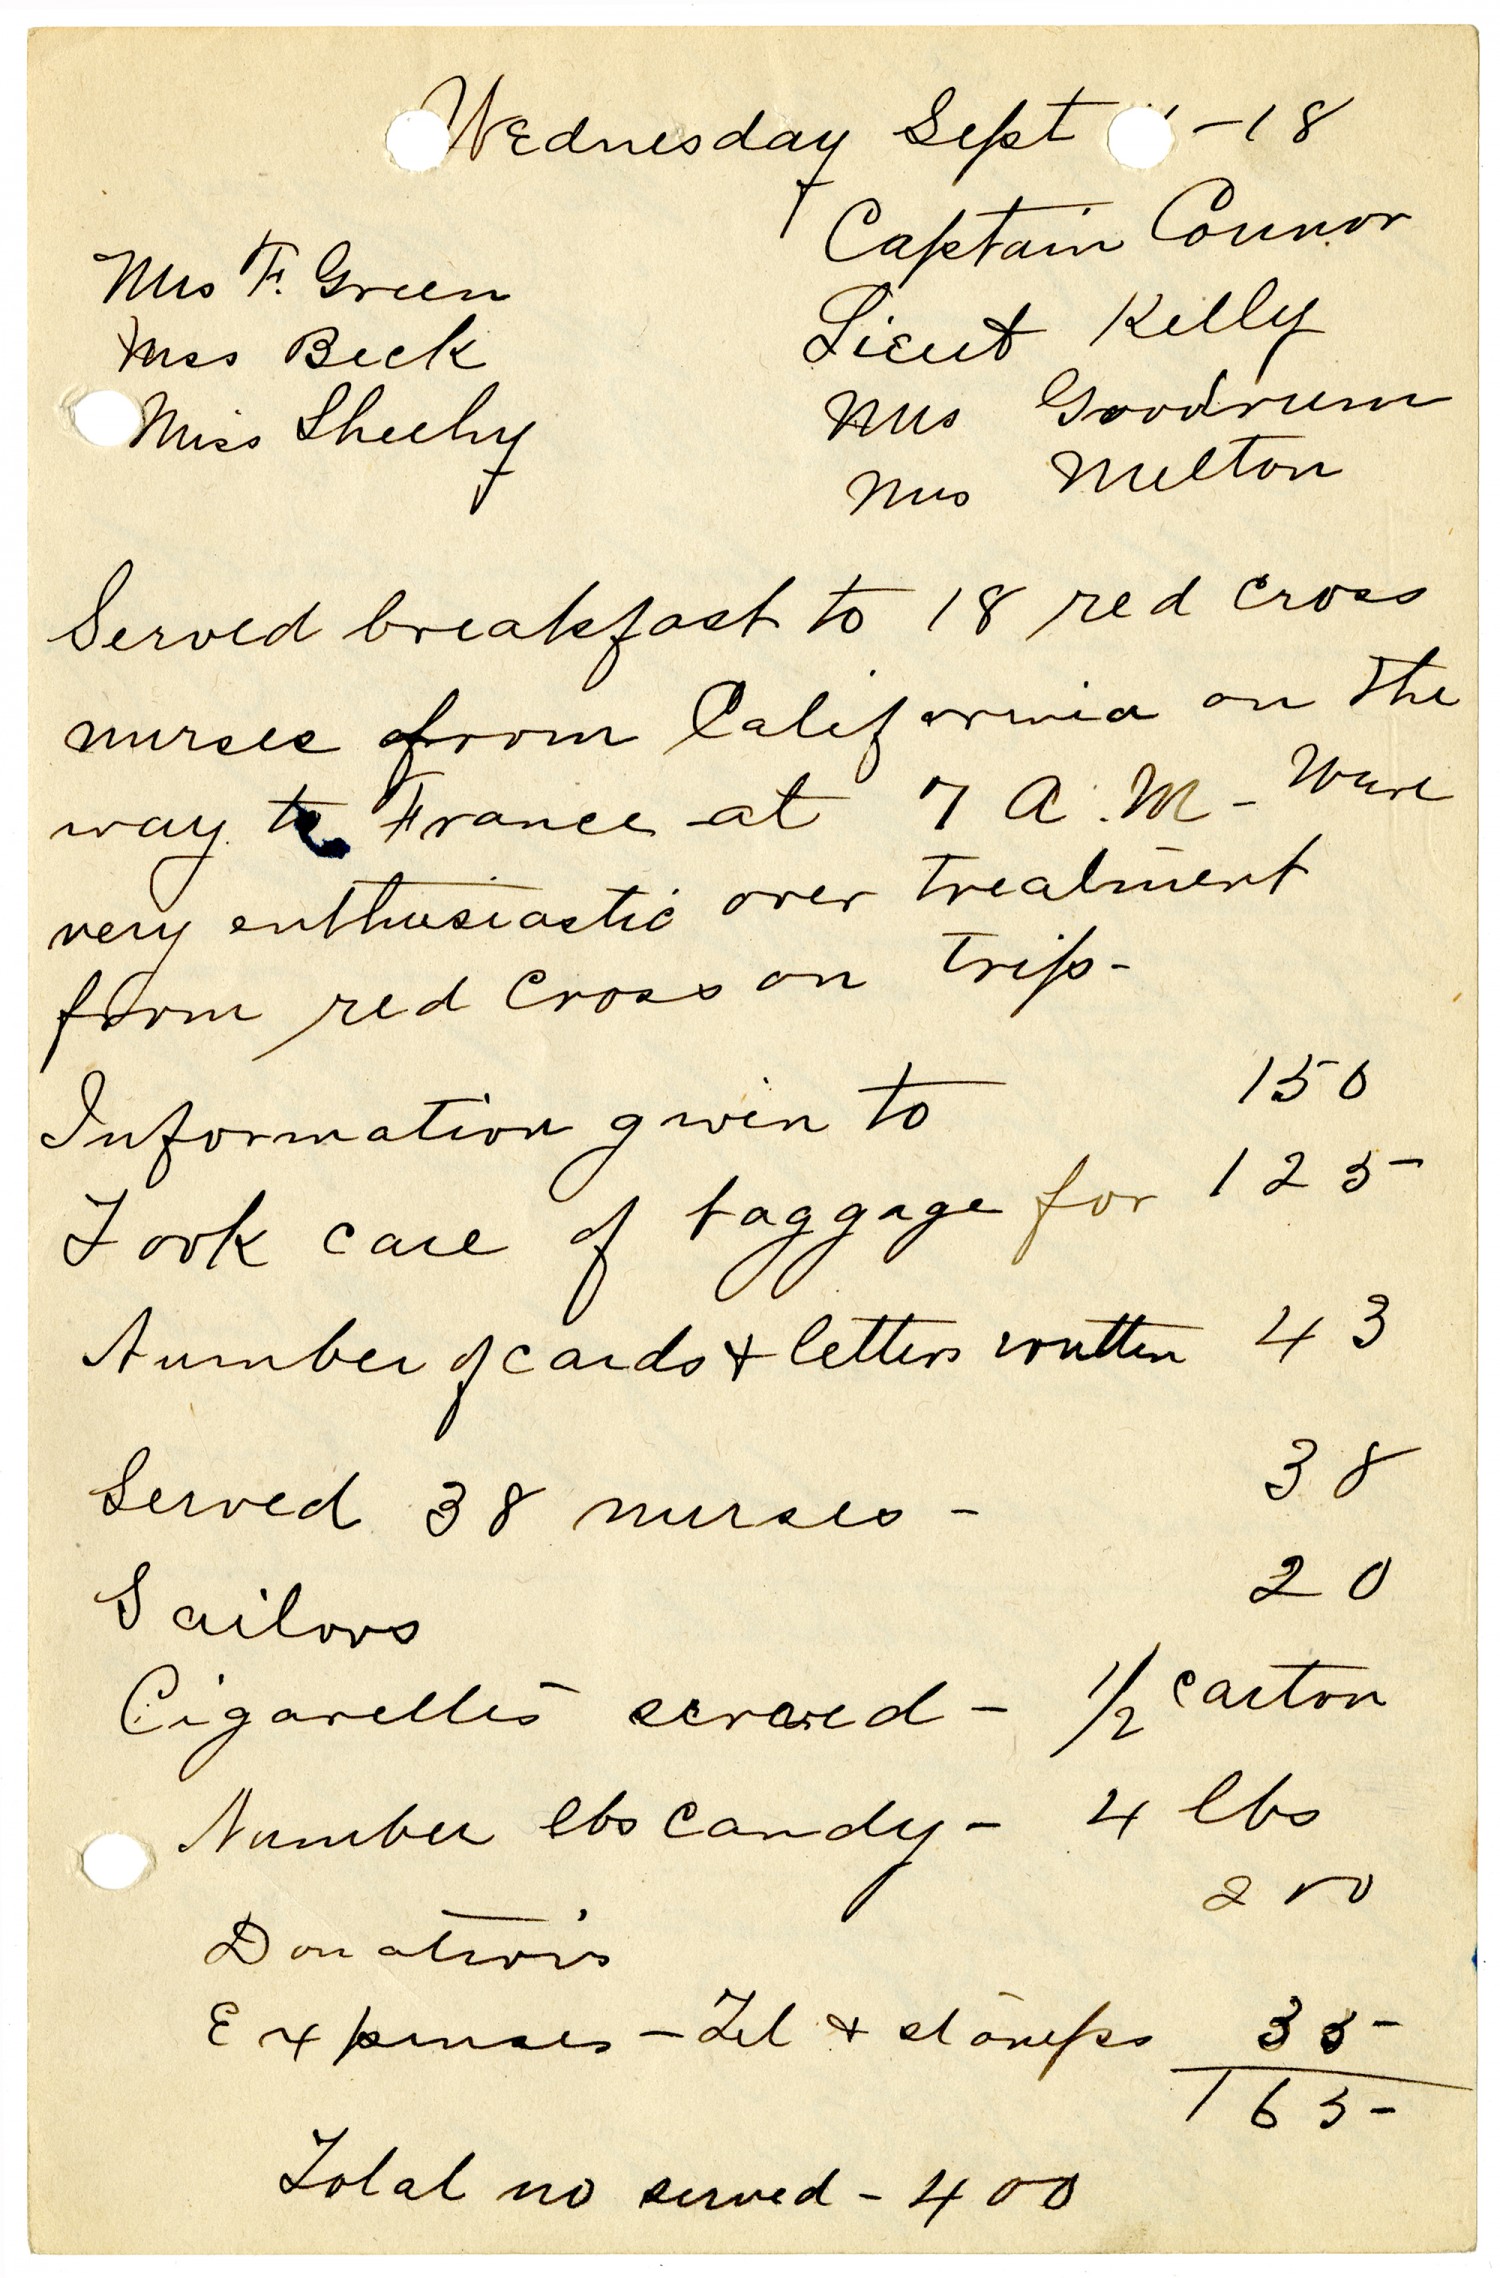 Wednesday Sept -18
Captain Connor
Mrs F. Green
Lieut Kelly
Miss Beck
Mrs Goodrum
Miss Sheehy
Mrs Melton
Served breakfast to 18 red cross
nurses from California on the
way to France at 7 A.M. - Were
very enthusiastic over treatment
from red cross on trip-
Information given to 150
Took care of baggage for 125
Number of cards & letters written 43
Served 38 nurses - 38
Sailors 20
Cigarettes served - 1/2 carton
Number lbs candy - 4 lbs
Donations 200
Expenses - Tel & stamps 35
165
Total no served - 400